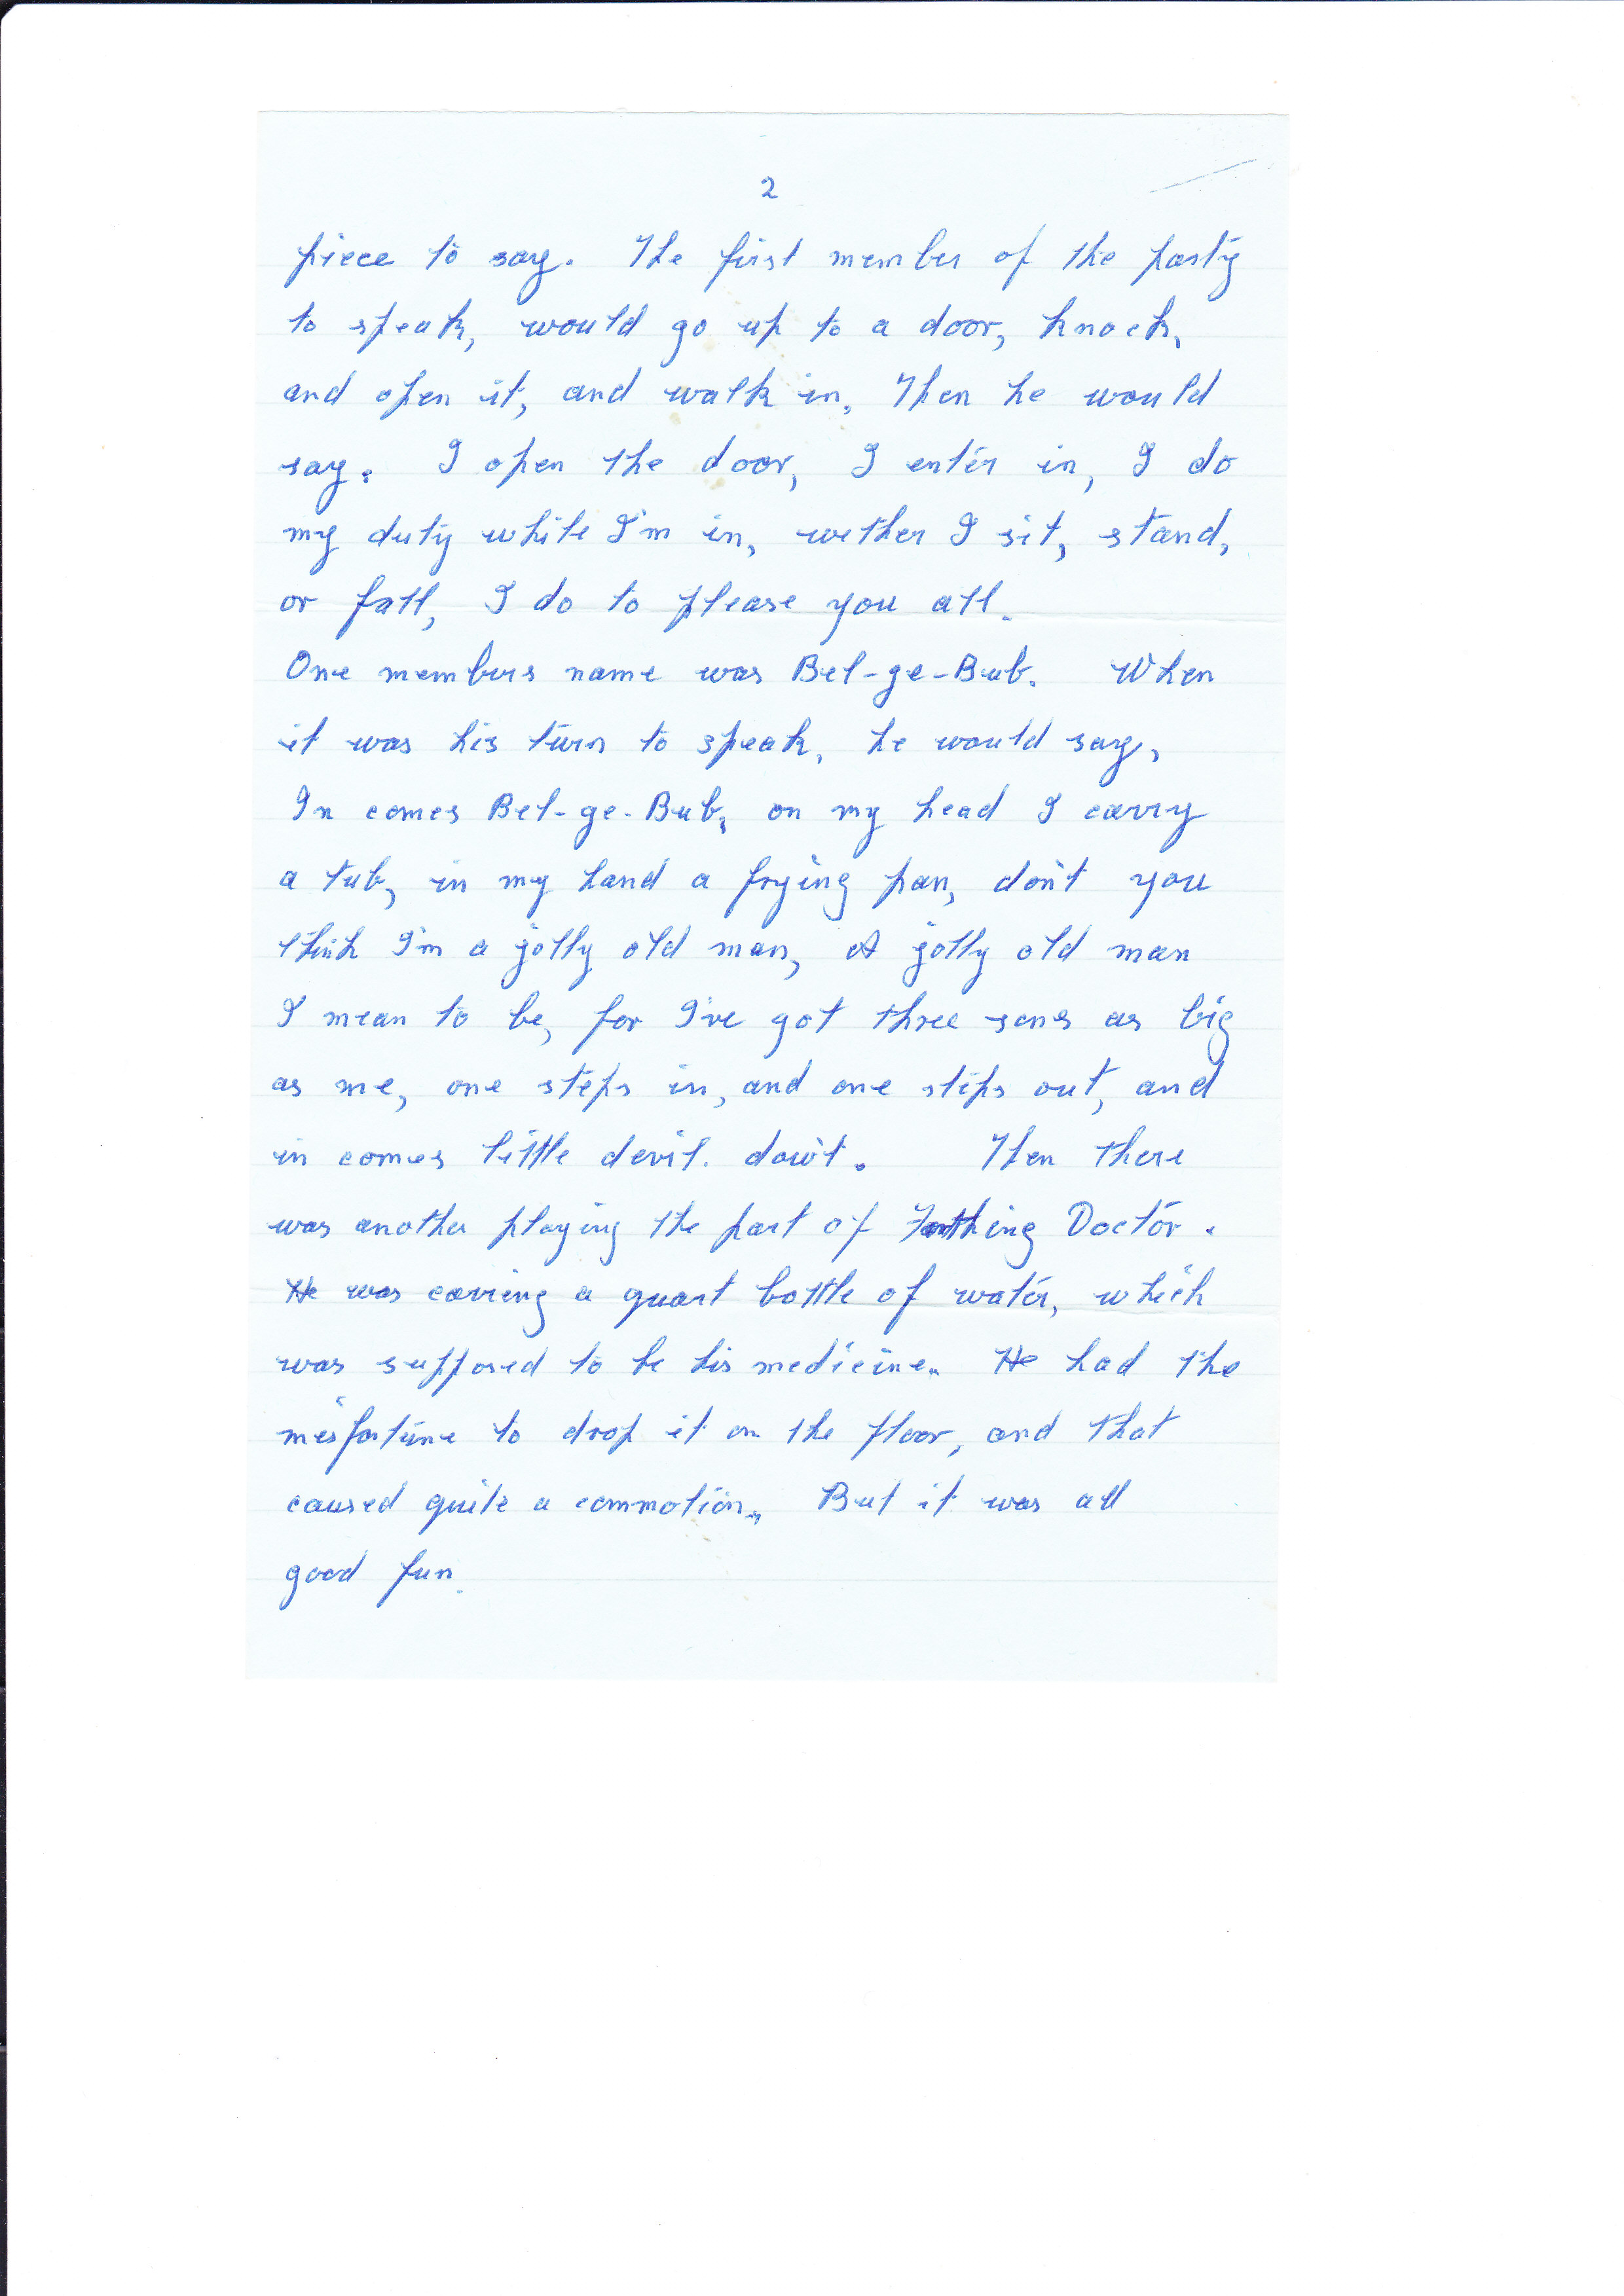 2
piece to say. The first member of the party
to speak, would go up to a door, knock,
and open it, and walk in. Then he would
say. I open the door, I enter in, I do
my duty while I'm in, wether I sit, stand,
or fall, I do to please you all.
One members name was Bel-ge-Bub. When
it was his turn to speak, he would say,
In comes Bel-ge-Bub, on my head I carry
a tub, in my hand a frying pan, don't you
think I'm a jolly old man, A jolly old man
I mean to be, for I've got three sons as big
as me, one steps in, and one steps out, and
in comes little devil. dowt. Then there
was another playing the part of Doctor.
He was carring a quart bottle of water, which
was supposed to be his medicine. He had the
misfortune to drop it on the floor, and that
caused quite a commotion. But it was all
good fun.